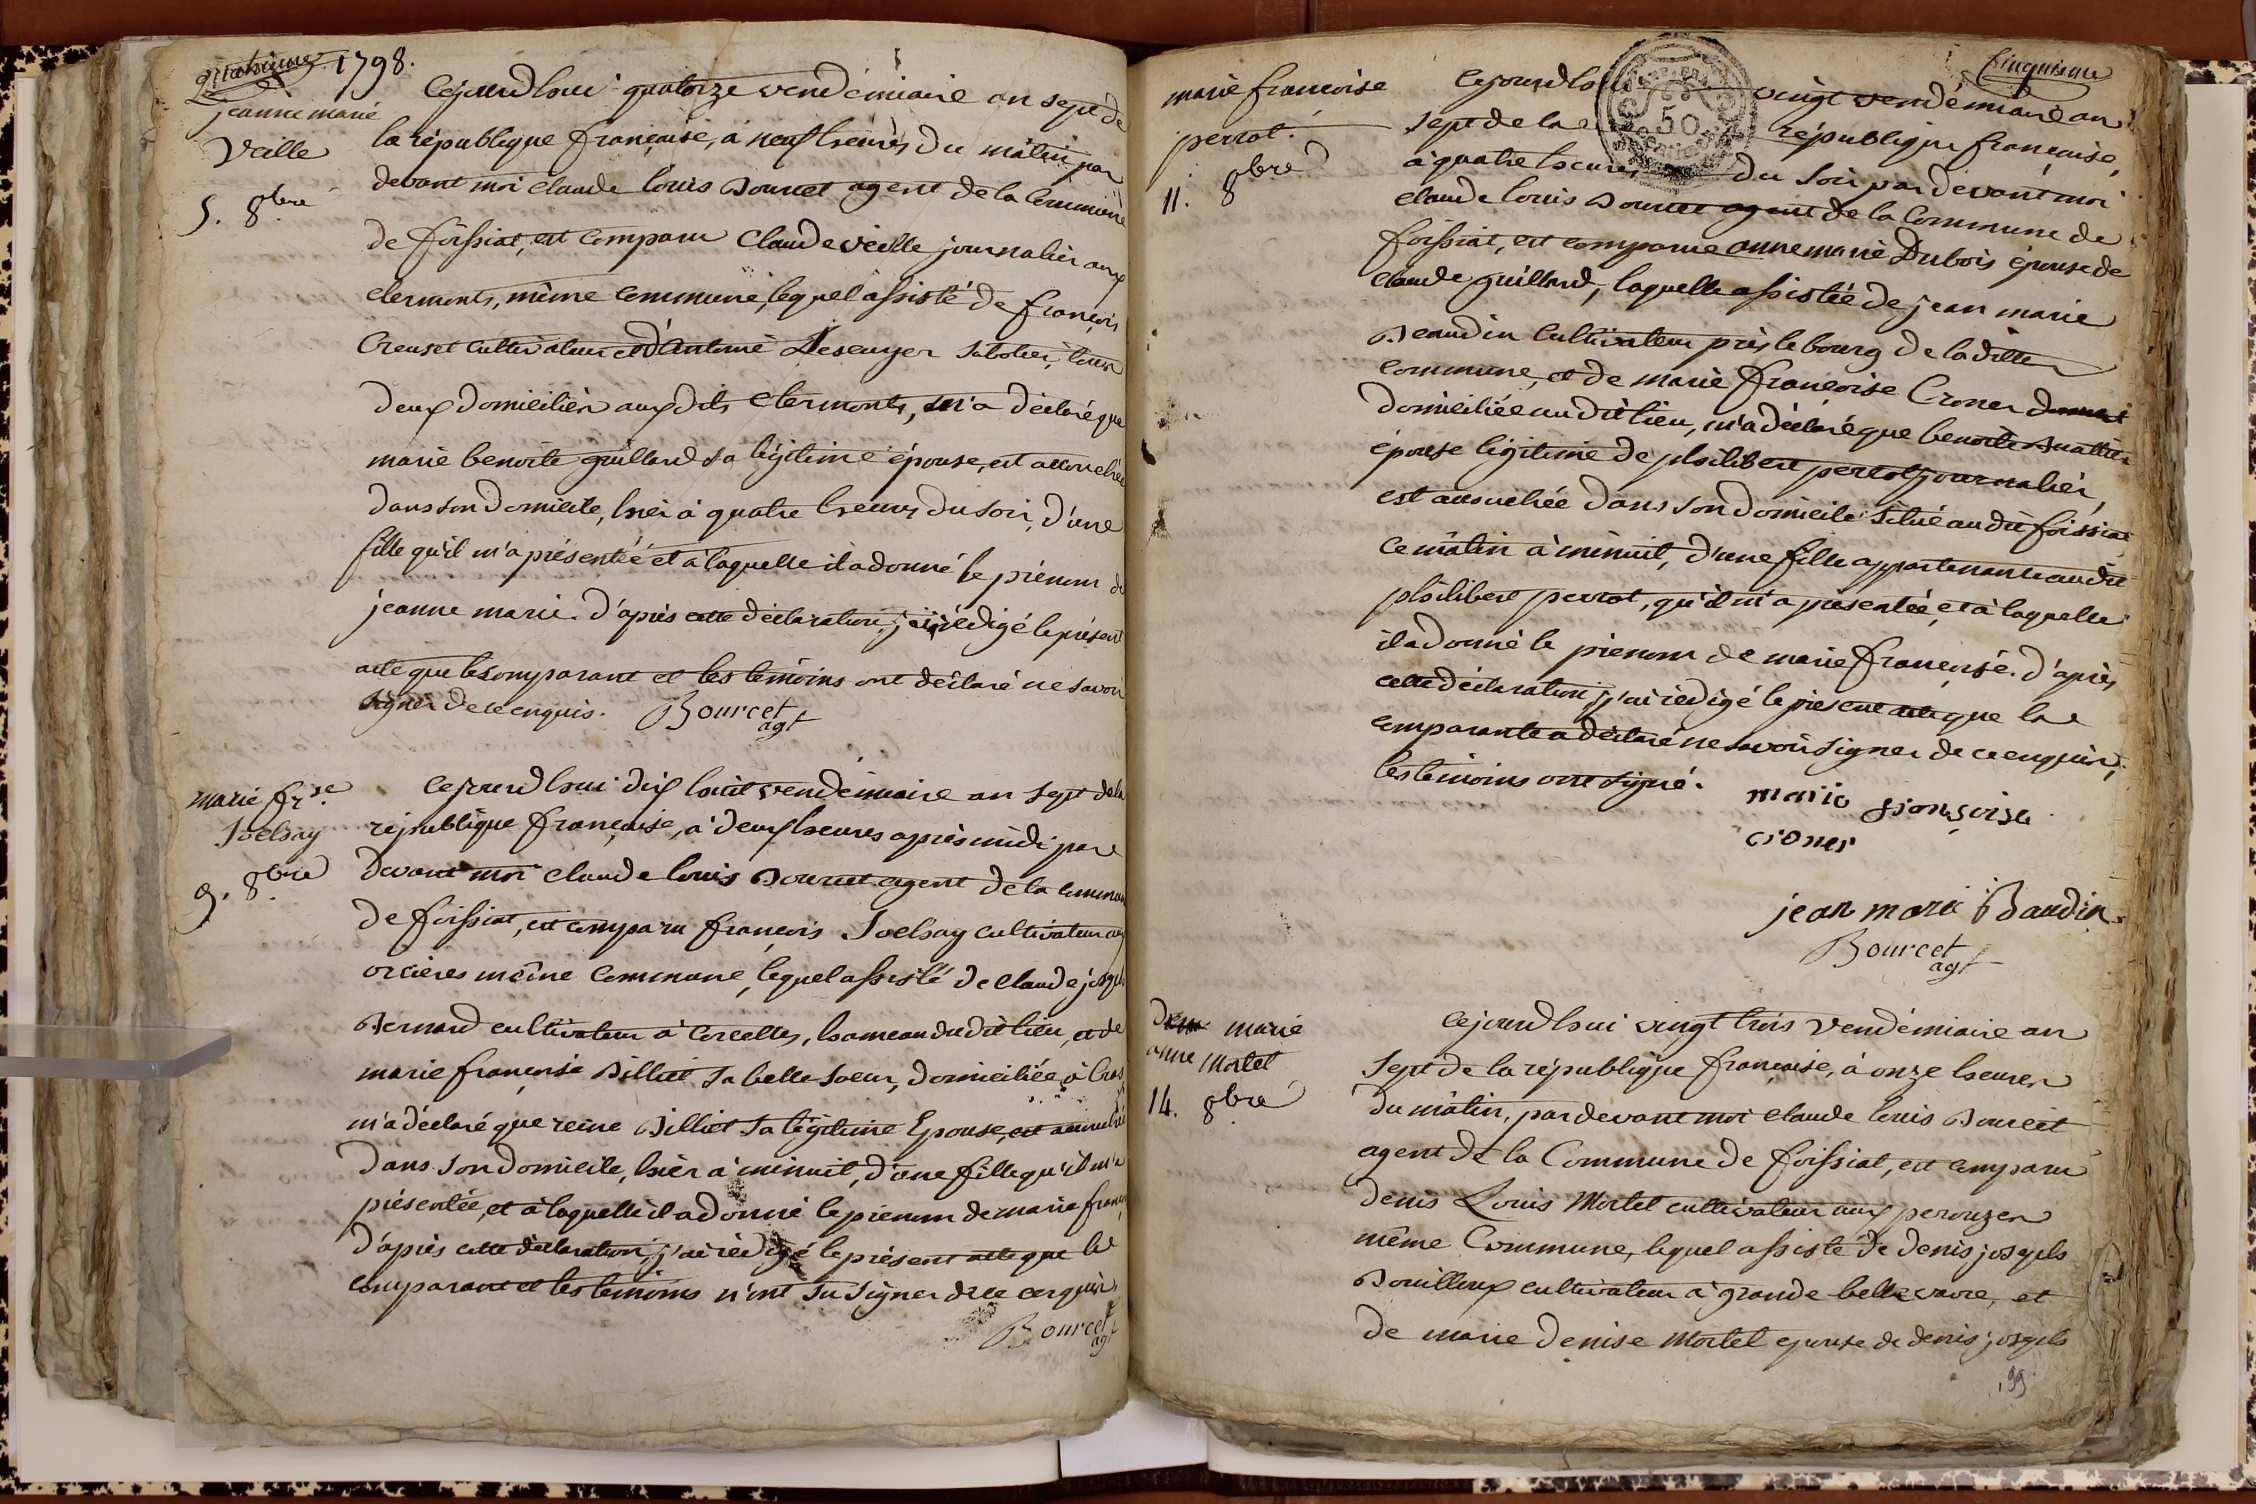 quatrieme 1798.
jeanne marie
Veille
5. 8bre
Cejourd'huy quatorze vendémiaire an sept de
la république française, a neuf heures du mâtin par
devant moi claude louis Bourcet agent de la Commune
de foissiat, est comparu Claude veille journalier aux
clermonts, même commune, lequel assisté de françois
Creuset cultivateur et d'antoine Lescuyer sabotier, tous
deux domiciliés aux dits clermonts, m'a déclaré que
marie benoite guillard sa légitime épouse, est accouchée
dans son domicile, hier à quatre heures du soir, d'une
fille qu'il m'a présentée et à laquelle il a donné le prénom de
jeanne marie. D'après cette déclaration, j'ai rédigé le présent
acte que le comparant et les témoins ont déclaré ne savoir
signer de ce enquis. Bourcet
agt
marie fr.se
Joelsay
9. 8bre
Cejourd'hui dix huit vendémiaire an sept de la
république française, a deux heures après midi par
devant moi claude louis Bourcet agent de la commune
de foissiat, est comparu françois Joelsay cultivateur aux
orcières même commune, lequel assisté de claude joseph
Bernard cultivateur à Corcelles, hameau du dit lieu, et de
marie françoise Billiet sa belle soeur, domiciliée à Cras
m'a déclaré que reine Billiet sa légitime Epouse, est accouchée
dans son domicile, hier à minuit, d'une fille qu'il m'a
présentée, et à laquelle il a donné le prénom de marie franç
D'après cette déclaration, j'ai rédigé le présent acte que le
comparant et les témoins n'ont su signer de ce enquis.
Bourcet
agt
Cinquieme
50
marie françoise
perrot.
11. 8bre
Cejourd'hui vingt vendémiaire an
sept de la république française,
à quatre heures du soir par devant moi
claude louis Bourcet agent de la Commune de
foissiat, est comparue anne marie Dubois épouse de
claude guillard, laquelle assistée de jean marie
Beaudin cultivateur près le bourg de la ditte
commune, et de marie françoise Croner
domiciliée au dit lieu, m'a déclaré que benoite
épouse légitime de philibert perrot journalier,
est accouchée dans son domicile situé au dit foissiat
ce mâtin à minuit, d'une fille appartenante au dit
philibert perrot, qu'il m'a présentée, et à laquelle
il a donné le prénom de marie françoise. D'après
cette déclaration, j'ai rédigé le présent acte que la
comparante a déclaré ne savoir signer de ce enquise,
les témoins ont signé. marie fransoise
croner
jean marie Baudin
Bourcet
agt
marie
anne Mortel
14. 8bre
Cejourd'hui vingt trois vendémiaire an
sept de la république française, à onze heures
du mâtin, par devant moi claude louis Bourcet
agent de la Commune de foissiat, est comparu
denis Louis Mortel cultivateur aux perouzes
même Commune, lequel assisté de denis joseph
Bouilloux cultivateur à grande bellevavre, et
de marie denise Mortel epouse de denis joseph
99